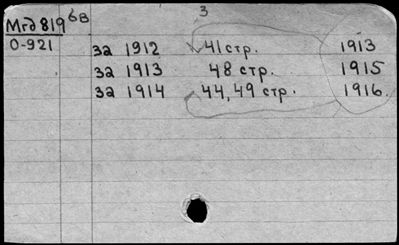 3
Мгд 819 6в
0-921
за 1912 41 стр. 1913
за 1913 48 стр. 1915
за 1914 44, 49 стр. 1916.